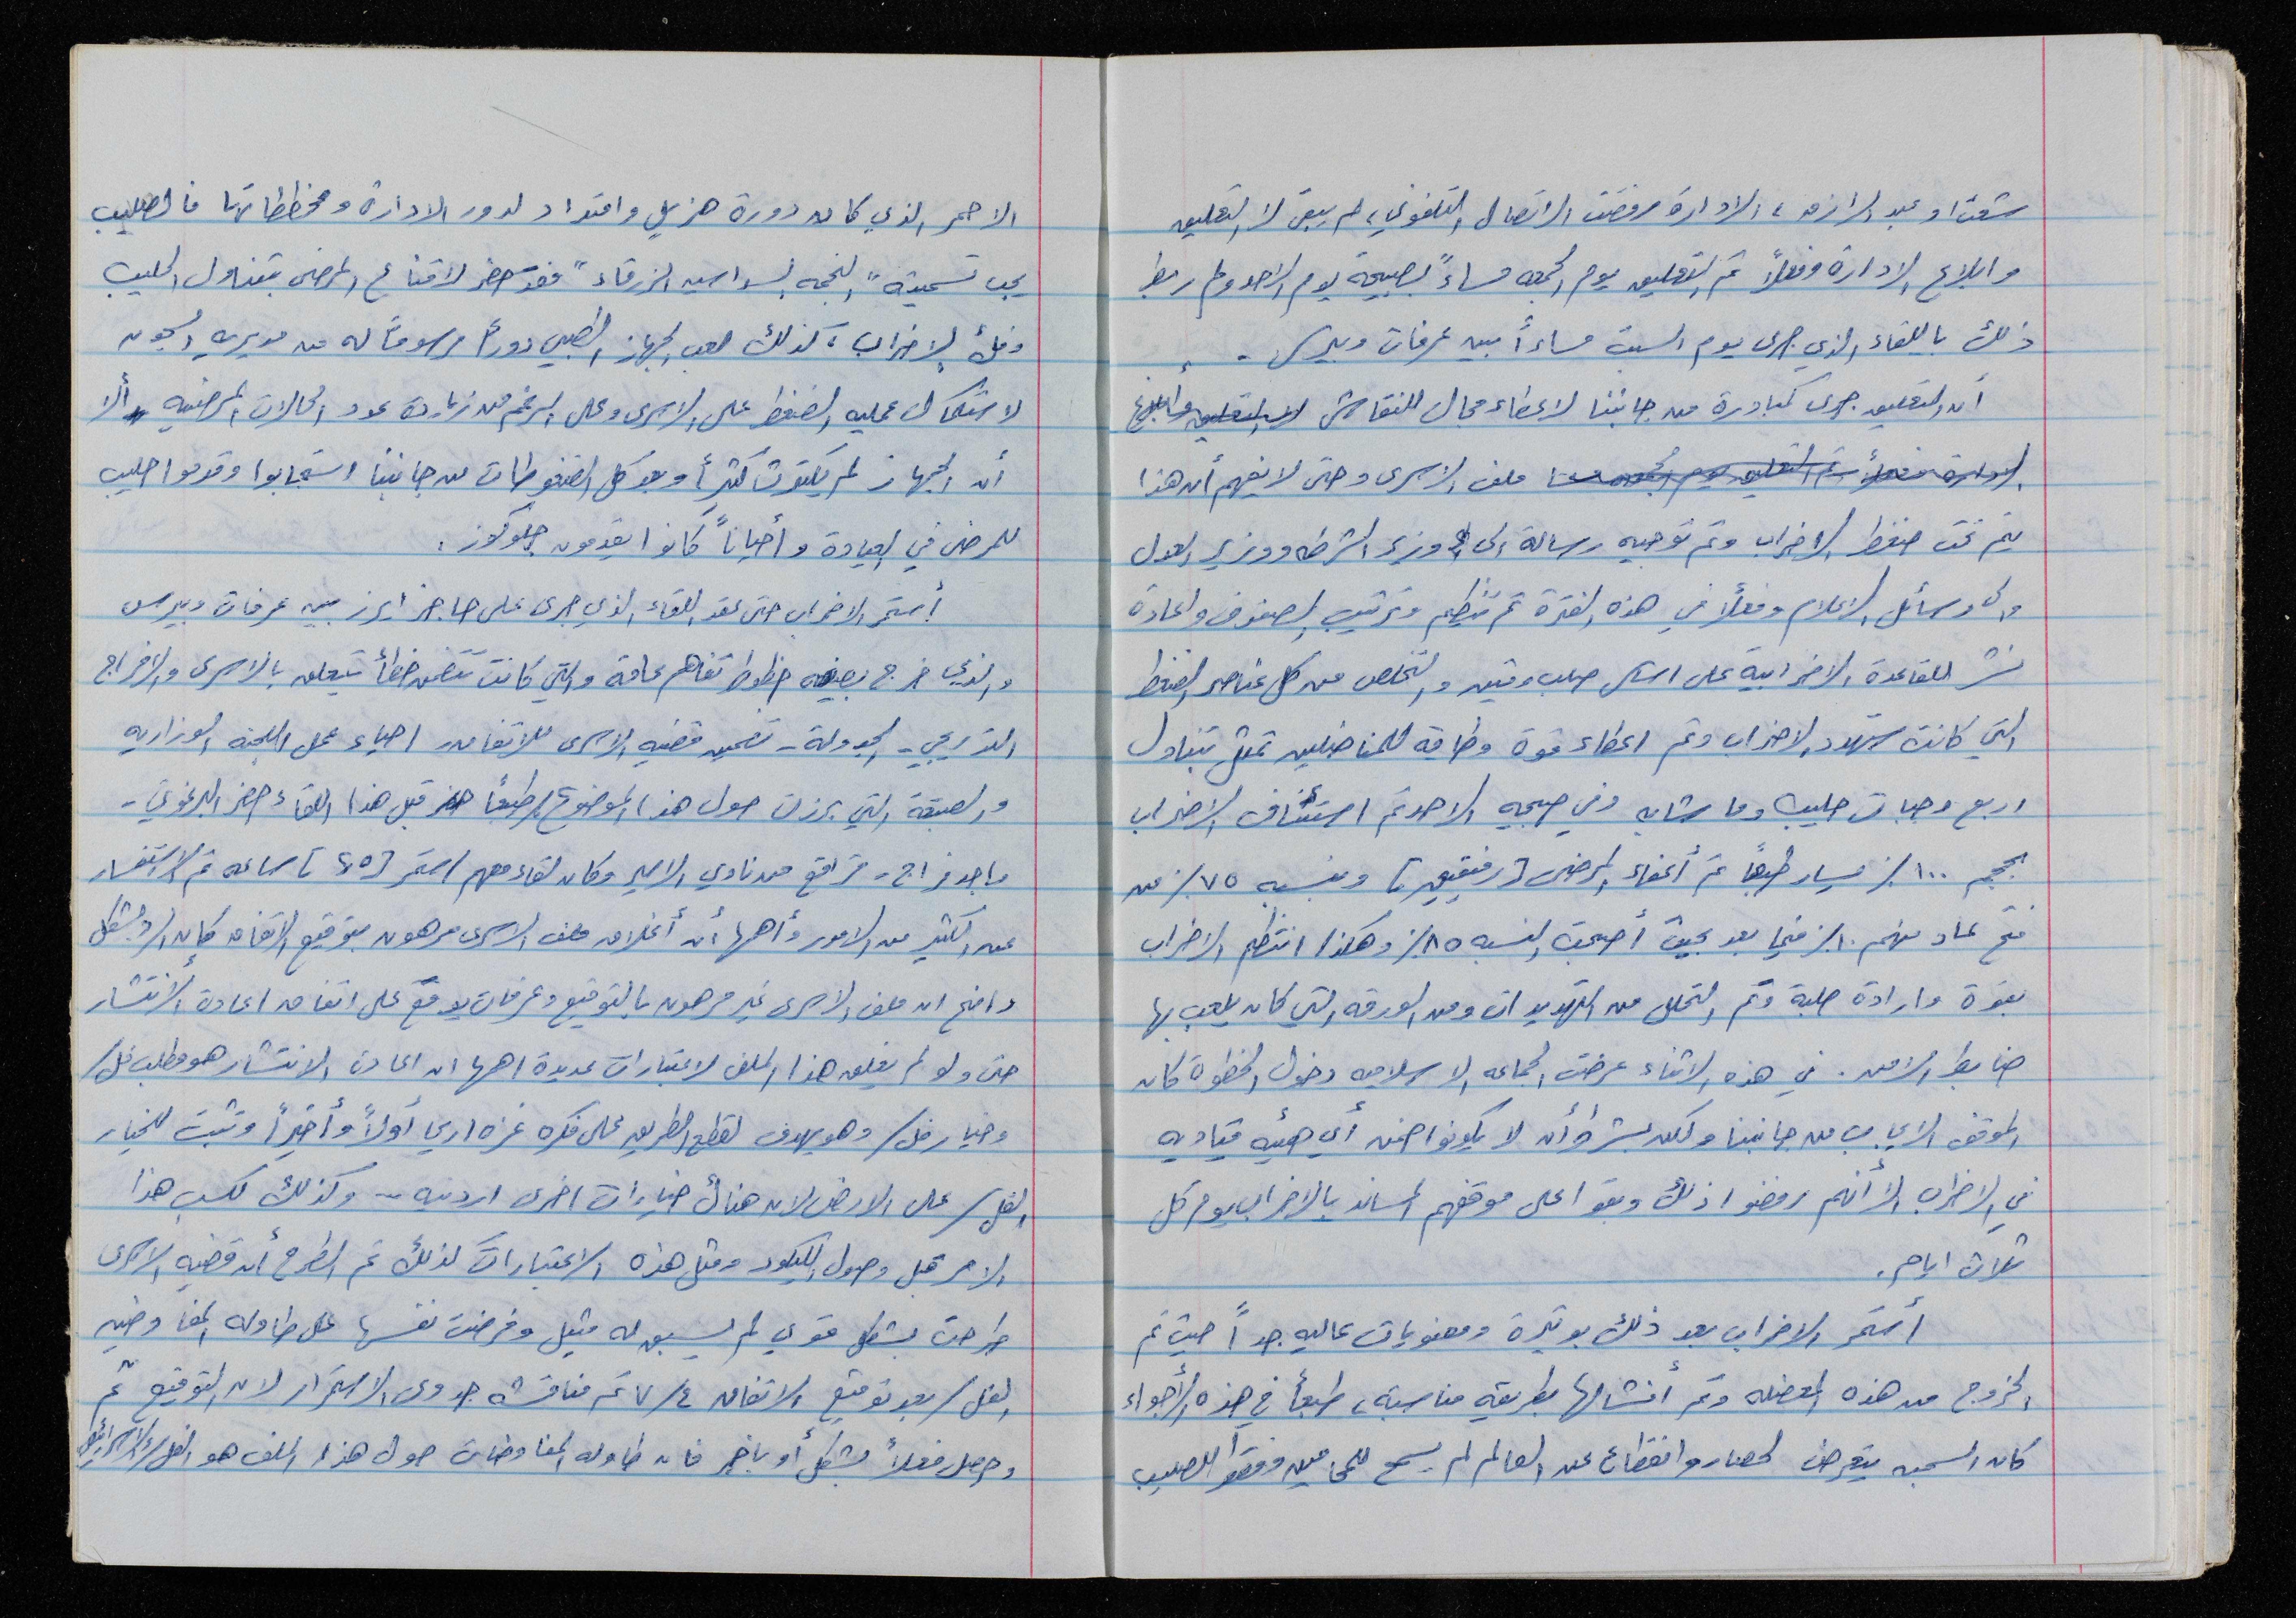 شعث او عبد الرازق، الادارة رفضت الاتصال التلفوني، لم يبق الا التعليق
وابلاغ الادارة وفعلاً تم التعليق يوم الجمعه مساءً لصبيحة يوم الاحد ولم ربط
ذلك باللقاء الذي جرى يوم السبت مساءاً بين عرفات وبيرس .
أن التعليق جرى كمبادرة من جانبنا لاعطاء مجال للنقاش لا التعليق وابلاغ
الادارة فعلاً تم التعليق يوم الجمعه ملف الاسرى وحتى لا يفهم أن هذا
يتم تحت ضغط الاضراب وتم توجيه رسالة الى وزير الشرطه ووزير العدل
والى وسائل الاعلام وفعلاً في هذه الفترة تم تنظيم وترتيب الصفوف واعادة
نشر للقاعدة الاضرابية على اساس صلب ومتين والتخلص من كل عناصر الضغط
التي كانت ستهدد الاضراب وتم اعطاء قوة وطاقة للمناضلين تمثل بتناول
اربع وجبات حليب وما شابه وفي صبيحه الاحد تم استئناف الاضراب
بحجم ١٠٠٪ يسار طبعاً تم أعفاء المرضى [رفيقين] وبنسبه ٧٥٪ من
فتح عاد منهم ١٠٪ فيما بعد بحيث أصبحت النسبه ٨٥٪ وهكذا انتظم الاضراب
بقوة وارادة صلبة وتم التحلل من التهديدات ومن الورقه التي كان يلعب بها
ضابط الامن . في هذه الاثناء عرضت الجماعه الاسلاميه دخول الخطوة كان
الموقف الايجابي من جانبنا ولكن بشرط أن لا يكونوا ضمن أي هيئه قياديه
في الاضراب الا أنهم رفضوا ذلك وبقوا على موقفهم المساند بالاضراب يوم كل
ثلاث ايام .
أستمر الاضراب بعد ذلك بوتيرة ومعنويات عاليه جداً حيث تم
الخروج من هذه المعضله وتم أفشالها بطريقه مناسبة، طبعاً في هذه الأجواء
كان السجن يتعرض لحصار وانقطاع عن العالم لم يسمح للمحامين وفقط للصليب
الاحمر الذي كان دورة هزيل وامتداد لدور الادارة ومخططاتها فالصليب
يجب تسميته "النجمه السداسيه الزرقاء" فقد حضر لاقناع المرضى بتناول الحليب
وفك الاضراب، كذلك لعب الجهاز الطبي دوراً مرسوماً له من مديريه السجون
لاستكمال عمليه الضغط على الاسرى وعلى الرغم من زيادة عدد الحالات المرضيه ألا
أن الجهاز لم يكترث كثيراً وبعد كل الضغوطات من جانبنا استجابوا وقدموا حليب
للمرضى في العيادة وأحياناً كانوا يقدمون جلوكوز .
أستمر الاضراب حتى عقد اللقاء الذي جرى على حاجز ايرز بين عرفات وبيرس
والذي خرج بصيغه خطوط تفاهم عامة والتي كانت تتضمن خطاً يتعلق بالاسرى والافراج
التدريجي - الجدولة - تضمين قضيه الاسرى للاتفاق، احياء عمل اللجنه الوزاريه
والصيغة التي برزت حول هذا الموضوع طبعاً قبل هذا اللقاء حضر البرغوثي -
ماجد فراج - مرافع من نادي الاسير وكان لقاء معهم استمر [٤٥] ساعه تم الاستفسار
عن الكثير من الامور وأهمها أن أغلاق ملف الاسرى مرهون بتوقيع الاتفاق كان الرد بشكل
واضح ان ملف الاسرى غير مرهون بالتوقيع وعرفات يوقع على اتفاق اعادة الأنتشار
حتى ولو لم يغلق هذا الملف لاعتبارات عديدة اهمها ان اعادة الانتشار هو مطلب فل/
وخيار فل/ وهو يهدف لقطع الطريق على فكره غزه اريحا أولاً وأخيراً وتثبت للخيار
الفل/ على الارض لان هناك خيارات اخرى اردنيه - وكذلك لكسب هذا
الامر قبل وصول الليكود ومثل هذه الاعتبارات كذلك تم الطرح أن قضيه الاسرى
طرحت بشكل قوي لم يسبق له مثيل وفرضت نفسها على طاوله المفاوضين
الفل/ بعد توقيع الاتفاق ٧/٤ تم مناقشه جدوى الاستمرار لان التوقيع تم
وحصل فعلاً بشكل أو بأخر فان طاوله المفاوضات حول هذا الملف هو الفل/الاسرائيلي